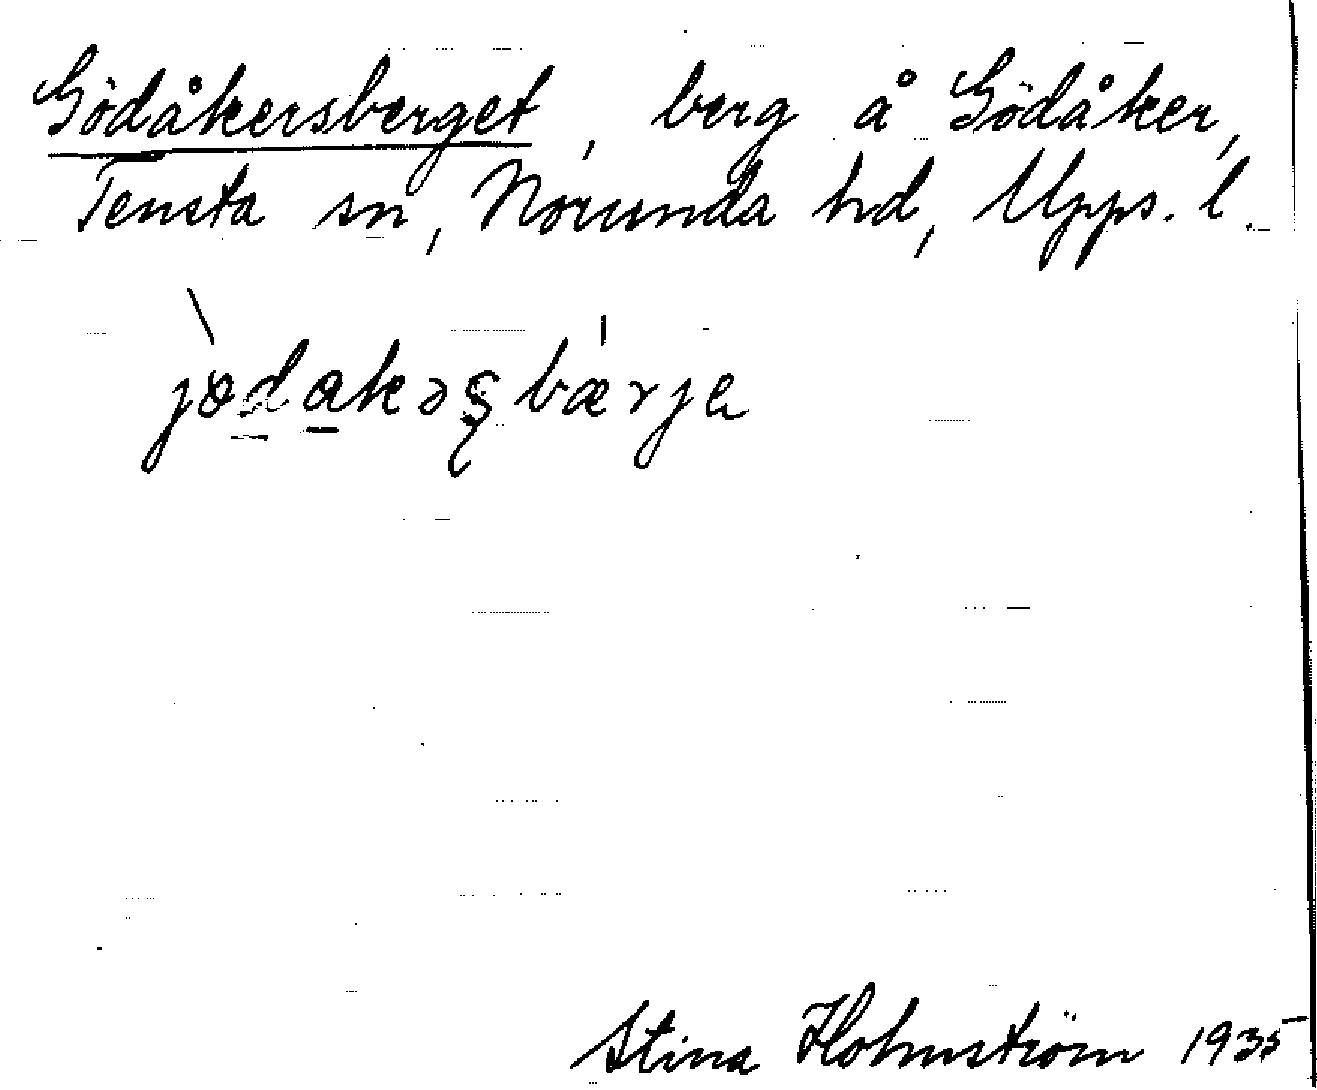 Gödåkersberget, berg å Gödåker,
Tensta sn, Norunda hd, Upps. l.
jödakəʂbærje
Stina Holmström 1935